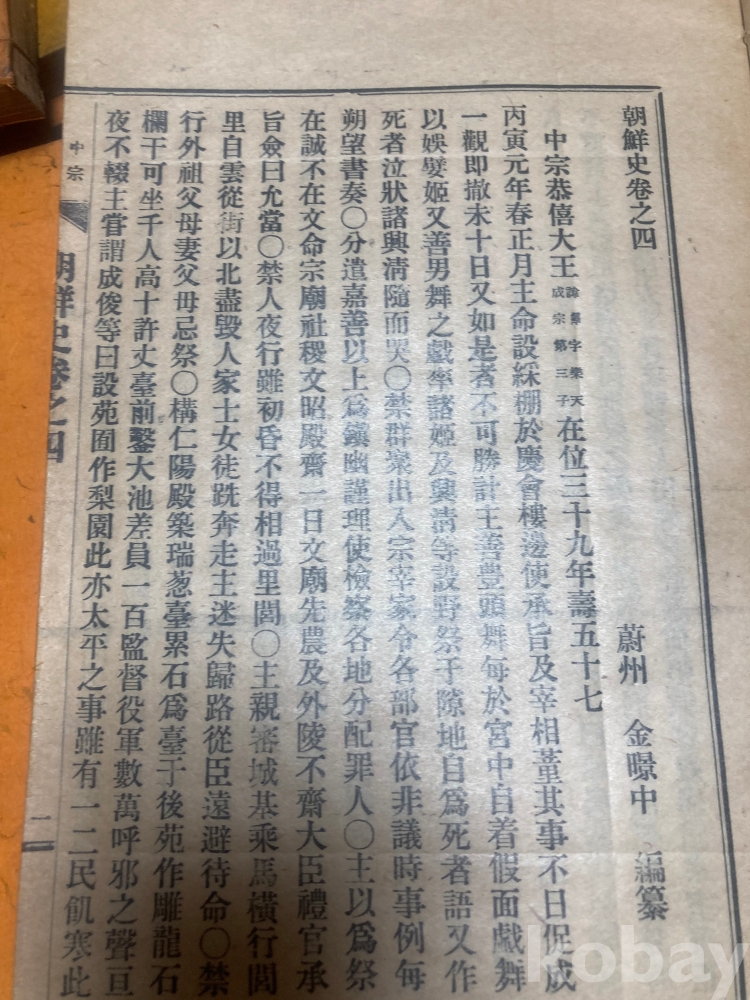 朝鮮史卷之四
蔚州 金暻中 編纂
中宗恭僖大王 諱懌字樂天 成宗第三子 在位三十九年壽五十七
丙寅元年春正月主命設綵棚於慶會樓邊使承旨及宰相董其事不日促成
一觀即撤未十日又如是者不可勝計主善豊頭舞每於宮中自着假面戱舞
以娛嬖姬又善男舞之戱率諸姬及興淸等設野祭于隙地自爲死者語又作
死者泣狀諸興淸隨而哭〇禁群衆出入宗宰家令各部官依非議時事例每
朔望書奏〇分遣嘉善以上爲鎭幽謹理使檢察各地分配罪人〇主以爲祭
在誠不在文命宗廟社稷文昭殿齋一日文廟先農及外陵不齋大臣禮官承
旨僉曰允當〇禁人夜行雖初昏不得相過里閭〇主親審城基乘馬橫行閭
里自雲從街以北盡毀人家士女徒跣奔走主迷失歸路從臣遠避待命〇禁
行外祖父母妻父母忌祭〇構仁陽殿築瑞葱臺累石爲臺于後苑作雕龍石
欄干可坐千人高十許丈臺前鑿大池差員一百監督役軍數萬呼邪之聲亘
夜不輟主嘗謂成俊等曰設苑囿作梨園此亦太平之事雖有一二民飢寒此
中宗
朝鮮史卷之四
一
kobay